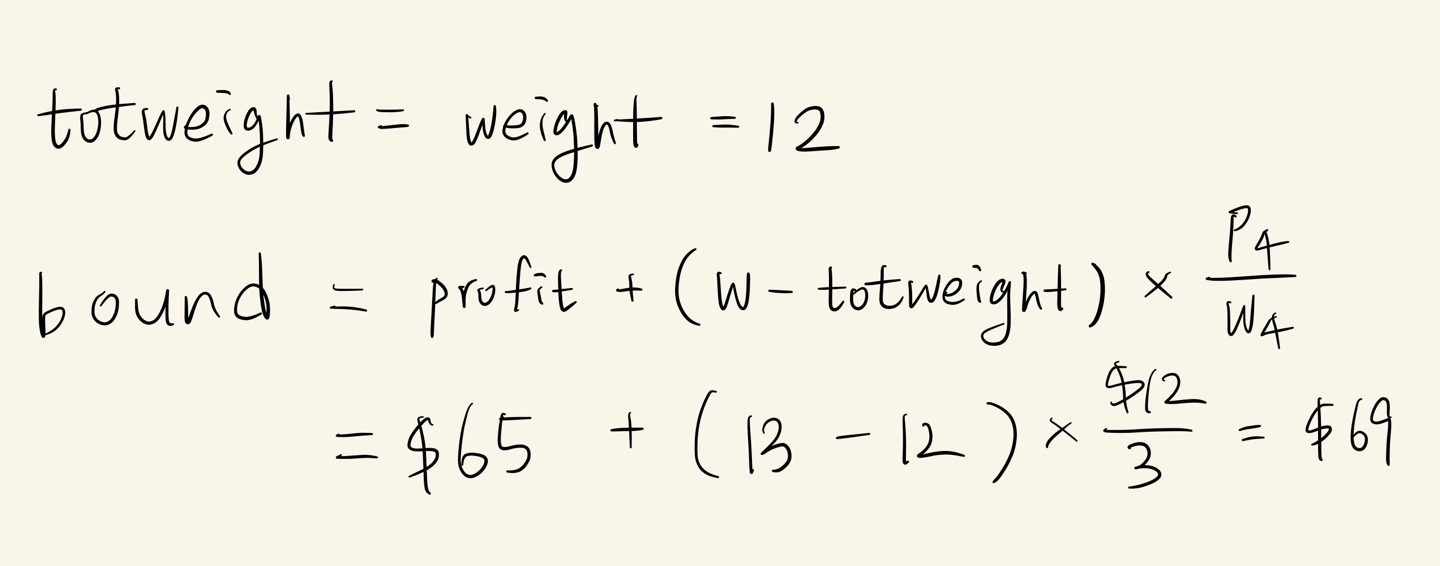 totweight = weight = 12
bound = profit + (W - totweight) × P₄/W₄
= $65 + (13 - 12) × $12/3 = $69